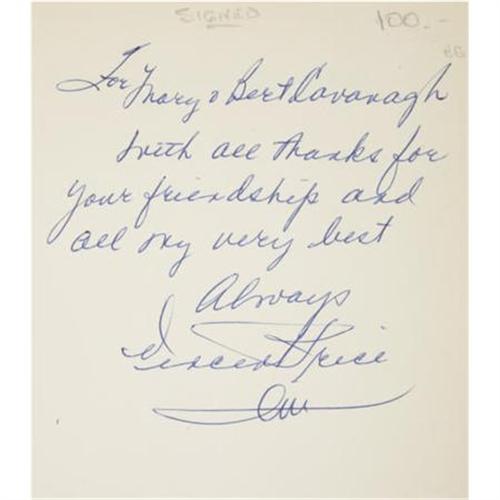 SIGNED 100.-
For Mary & Bert Cavanagh
with all thanks for
your friendship and
all my very best
Always
Vincent Price